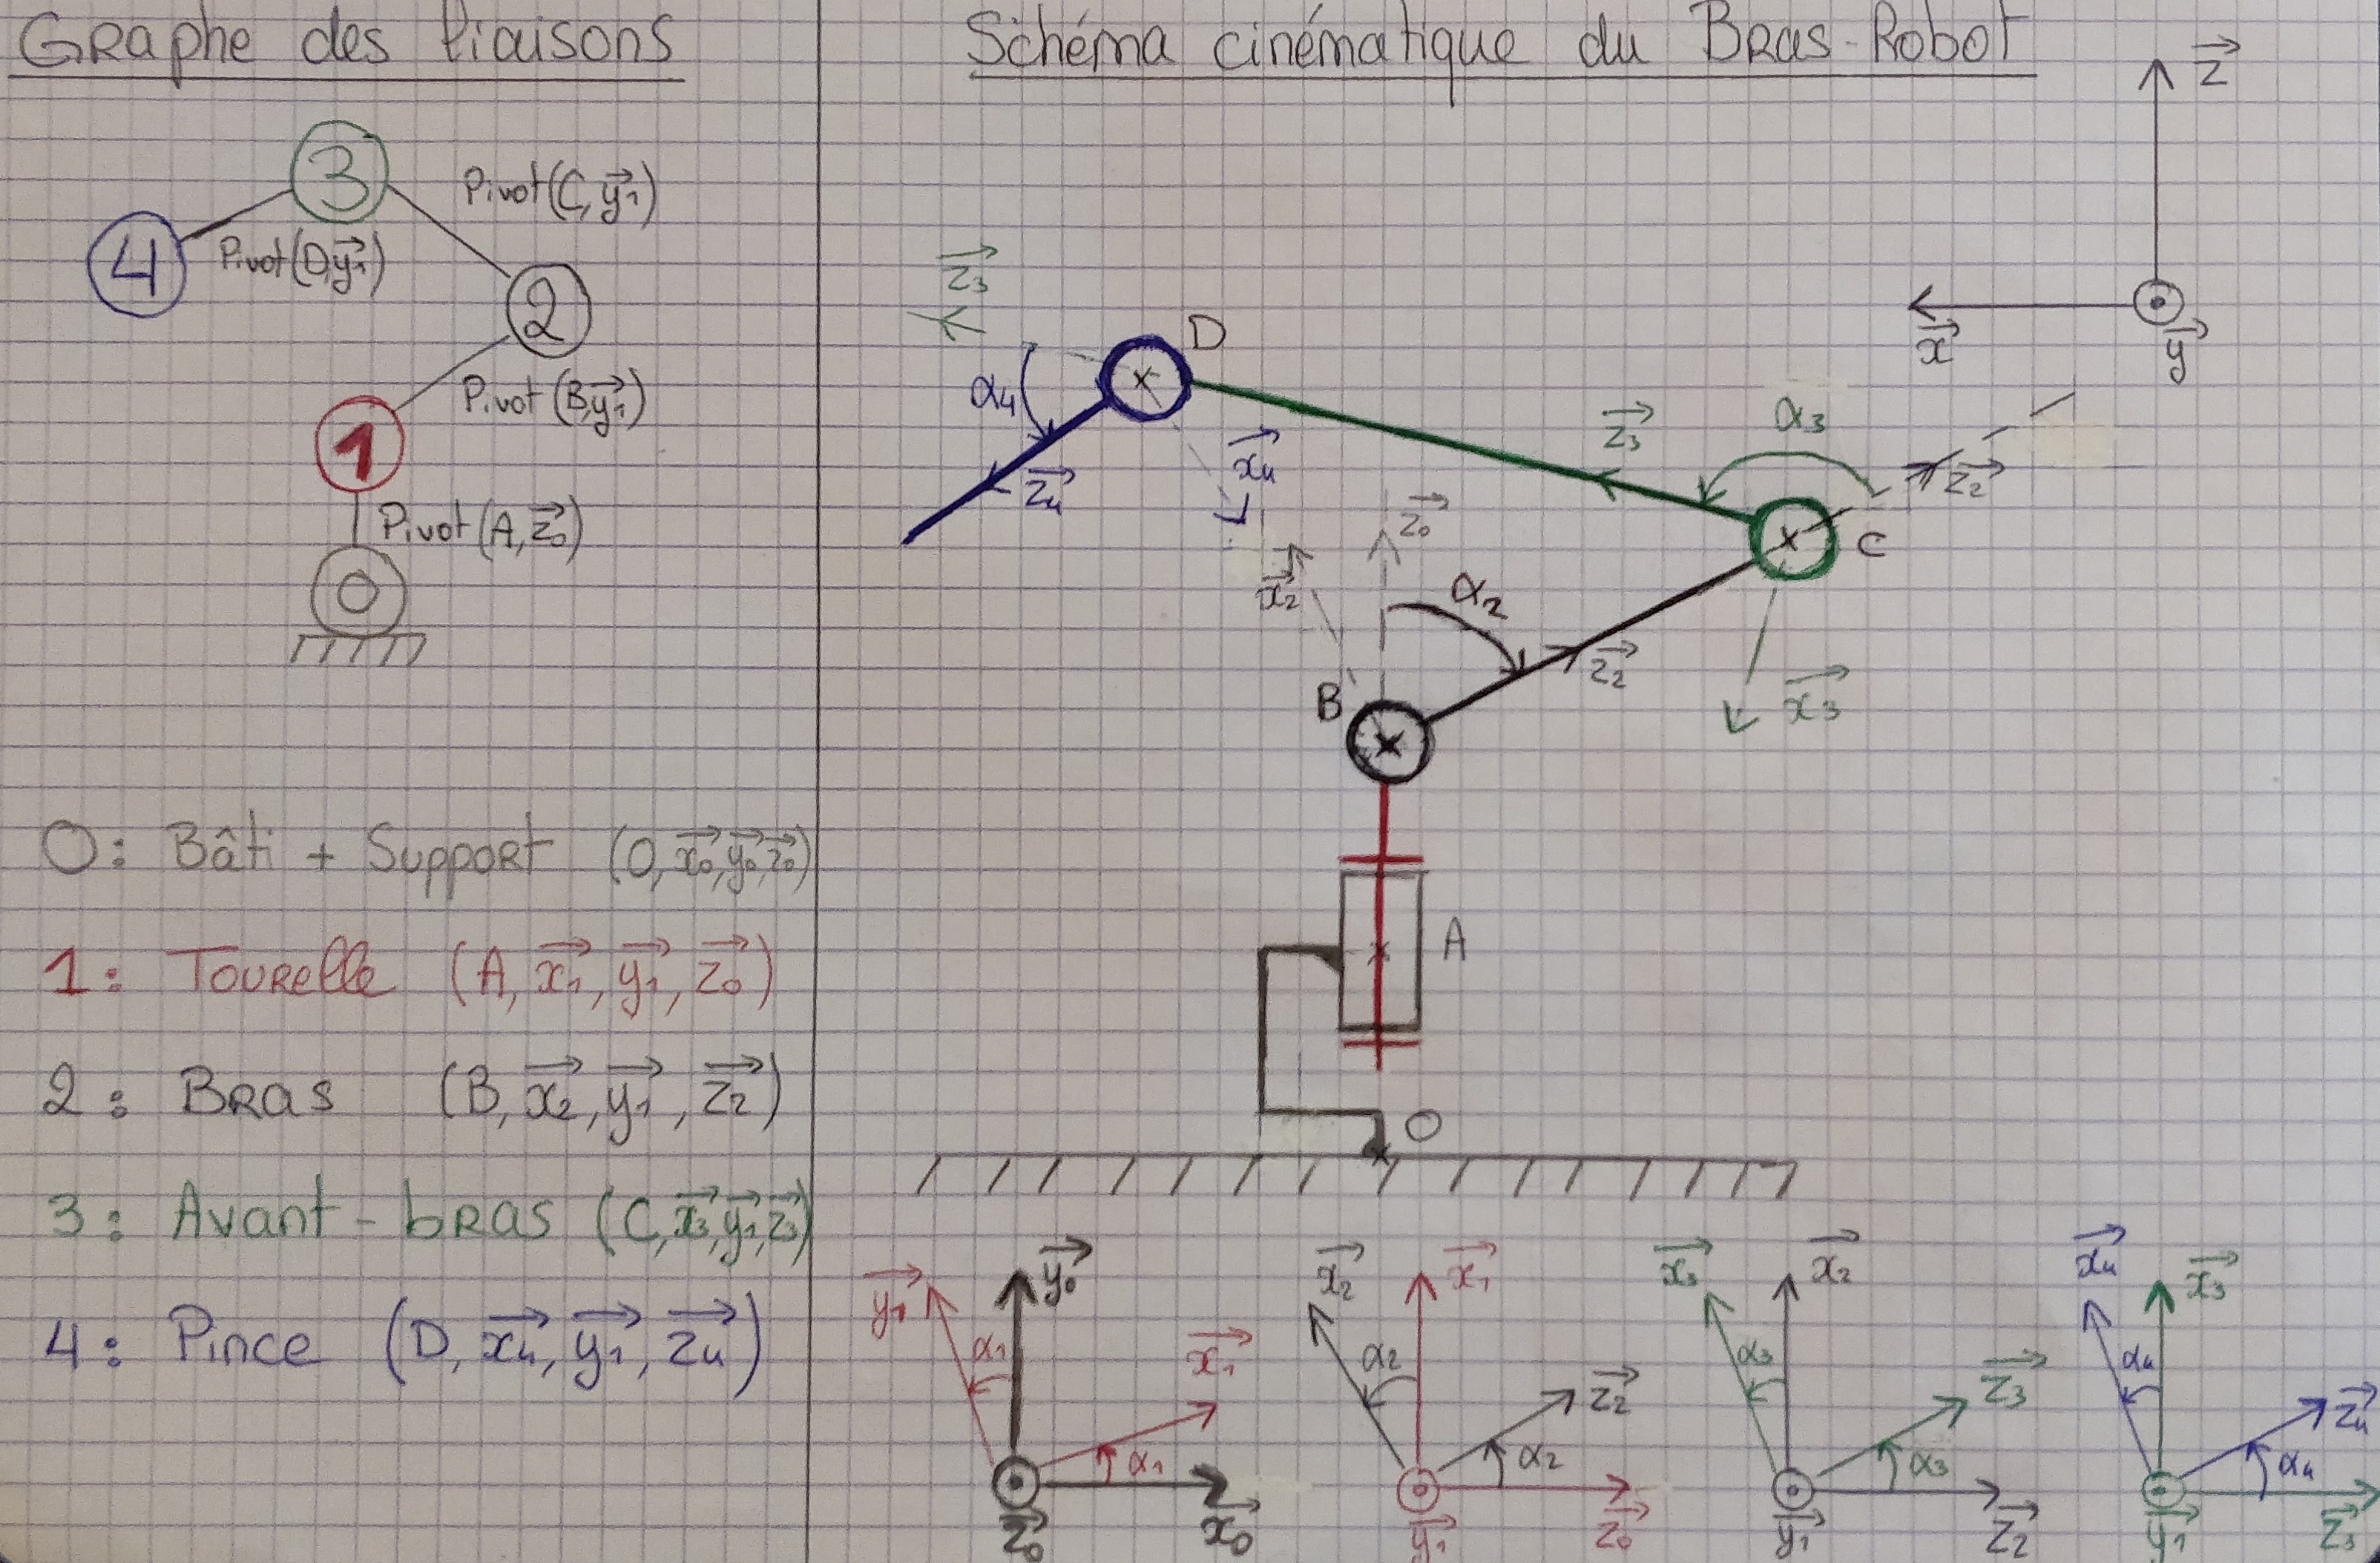 Graphe des liaisons
3
Pivot (C, y₁)
4
Pivot (D, y₁)
2
Pivot (B, y₁)
1
Pivot (A, z₀)
0
0: Bâti + Support (O, x₀, y₀, z₀)
1: Tourelle (A, x₁, y₁, z₀)
2: Bras (B, x₂, y₁, z₂)
3: Avant-bras (C, x₃, y₁, z₃)
4: Pince (D, x₄, y₁, z₄)
Schéma cinématique du Bras-Robot
z
x
y
z₃
D
α₄
z₄
x₄
z₃
α₃
z₂
C
x₃
z₀
x₂
α₂
z₂
B
A
O
y₁
y₀
α₁
x₁
α₁
z₀
x₀
x₂
x₁
α₂
z₂
α₂
y₁
z₀
x₃
x₂
α₃
z₃
α₃
y₁
z₂
x₄
x₃
α₄
z₄
α₄
y₁
z₃